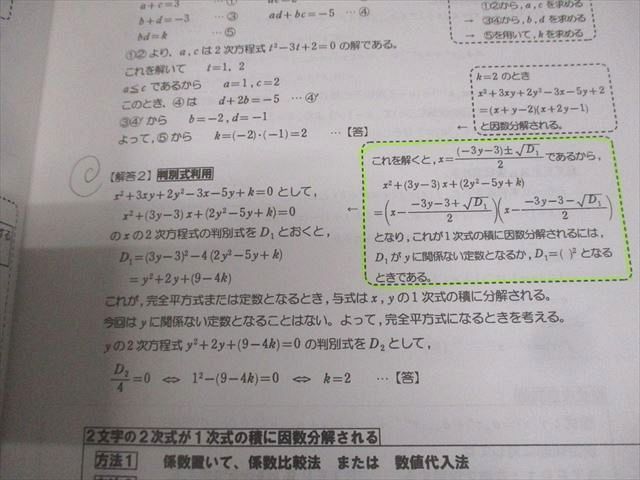 a+c=3 …①
b+d=-3 …③ ad+bc=-5 …④
bd=k …⑤
①②より，a，cは2次方程式 t²-3t+2=0 の解である。
これを解いて t=1，2
a≦c であるから a=1，c=2
このとき，④は d+2b=-5 …④′
③④′から b=-2，d=-1
よって，⑤から k=(-2)・(-1)=2 …【答】
①②から，a，cを求める
→ ③④から，b，dを求める
→ ⑤を用いて，kを求める
k=2 のとき
x²+3xy+2y²-3x-5y+2
=(x+y-2)(x+2y-1)
← と因数分解される。
【解答2】判別式利用
x²+3xy+2y²-3x-5y+k=0 として，
x²+(3y-3)x+(2y²-5y+k)=0
の x の2次方程式の判別式を D₁ とおくと，
D₁=(3y-3)²-4(2y²-5y+k)
=y²+2y+(9-4k)
←
これを解くと，x=((-3y-3)±√D₁)/2 であるから，
x²+(3y-3)x+(2y²-5y+k)
=(x-(-3y-3+√D₁)/2)(x-(-3y-3-√D₁)/2)
となり，これが1次式の積に因数分解されるには，
D₁がyに関係ない定数となるか，D₁=( )²となる
ときである。
これが，完全平方式または定数となるとき，与式はx，yの1次式の積に分解される。
今回はyに関係ない定数となることはない。よって，完全平方式になるときを考える。
yの2次方程式 y²+2y+(9-4k)=0 の判別式を D₂ として，
D₂/4=0 ⇔ 1²-(9-4k)=0 ⇔ k=2 …【答】
2文字の2次式が1次式の積に因数分解される
方法1 係数置いて、係数比較法 または 数値代入法